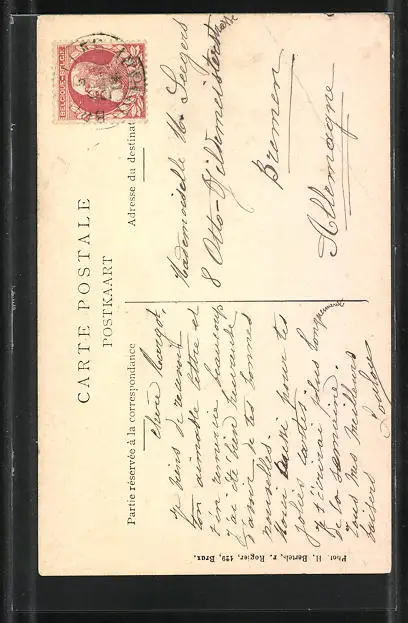 CARTE POSTALE
POSTKAART
Partie réservée à la correspondance
Adresse du destinat
BELGIQUE-BELGIE
Chère Margot,
Je viens de recevoir
ton aimable lettre et
t'en remercie beaucoup
j'ai été bien heureuse
d'avoir de tes bonnes
nouvelles.
Merci aussi pour tes
jolies cartes.
Je t'écrirai plus longuement
de la semaine.
Tous mes meilleurs
baisers
Mademoiselle M. Seegers
8 Otto-Gildemeisterstrasse
Bremen
Allemagne
Phot H. Bertels, r. Rogier, 129, Brux.